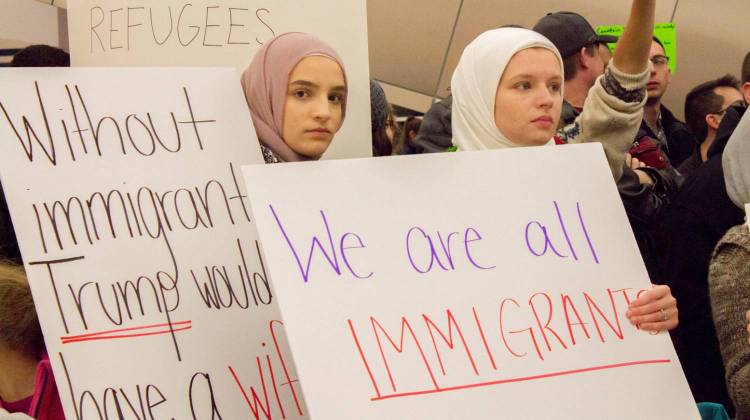 REFUGEES
Without
immigrant
Trump would
have a wif
We are all
IMMIGRANTS